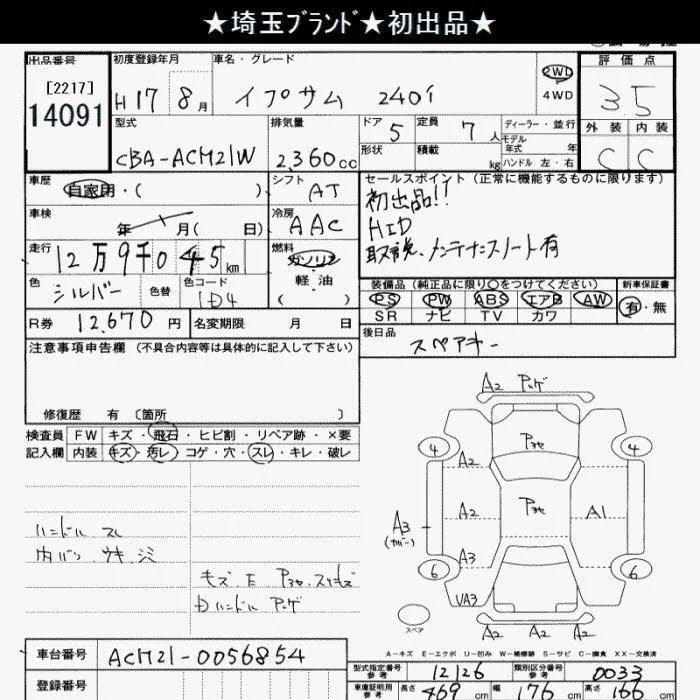 ★埼玉ﾌﾞﾗﾝﾄﾞ★初出品★
出品番号 初度登録年月 車名・グレード 評価点
[2217]
14091
H17年8月 イプサム 240i 2WD 4WD 35
型式 排気量 ドア 5 定員 7人 ディーラー・並行 外装 内装
CBA-ACM21W 2,360cc 形状 積載 kg モデル年式 年 ハンドル 左・右 C C
車歴 自家用・( ) シフト AT セールスポイント(正常に機能するものに限ります)
初出品!!
車検 年 月( 日) 冷房 AAC HID
取説、メンテナンスノート有
走行 12万9千045km 燃料 ガソリン・軽油
色 シルバー 色替 色コード 1D4
装備品(純正品に限り○をつけてください) 新車保証書
PS PW ABS エアB AW 有・無
SR ナビ TV カワ
R券 12,670円 名変期限 月 日
後日品 スペアキー
注意事項申告欄(不具合内容等は具体的に記入して下さい)
修復歴 有〔箇所 〕
検査員 FW キズ・飛石・ヒビ割・リペア跡・×要
記入欄 内装 キズ・汚レ・コゲ・穴・スレ・キレ・破レ
ハンドル スレ
内バン ウキ シミ
キズ E Pヨセ スリキズ
Dハンドル Pハゲ
A2 Pハゲ
4 Pヨセ 4
A2
A2 Pヨセ A1
A3
(カバー)
A3
6 6
VA3
スペア A2 A2 A2
A-キズ E-エクボ U-凹み W-補修跡 S-サビ C-腐食 XX-交換済
車台番号 ACM21-0056854
型式指定番号 参考 12126 類別区分番号 参考 0033
登録番号 車庫証明用 参考 長さ 469cm 幅 176cm 高さ 166cm